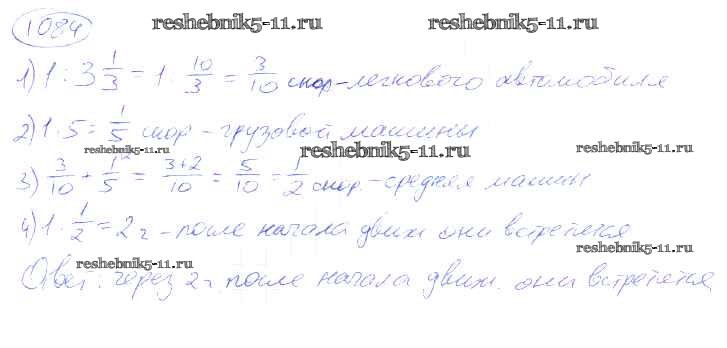 reshebnik5-11.ru reshebnik5-11.ru
1084
1) 1 : 3 1/3 = 1 · 10/3 = 3/10 скор - легкового автомобиля
2) 1 : 5 = 1/5 скор - грузовой машины
reshebnik5-11.ru reshebnik5-11.ru reshebnik5-11.ru
3) 3/10 + 1/5 = 3+2/10 = 5/10 = 1/2 скор. - средняя машины
4) 1 : 1/2 = 2 ч - после начала движ они встретятся
reshebnik5-11.ru reshebnik5-11.ru
Ответ: через 2 ч. после начала движ. они встретятся